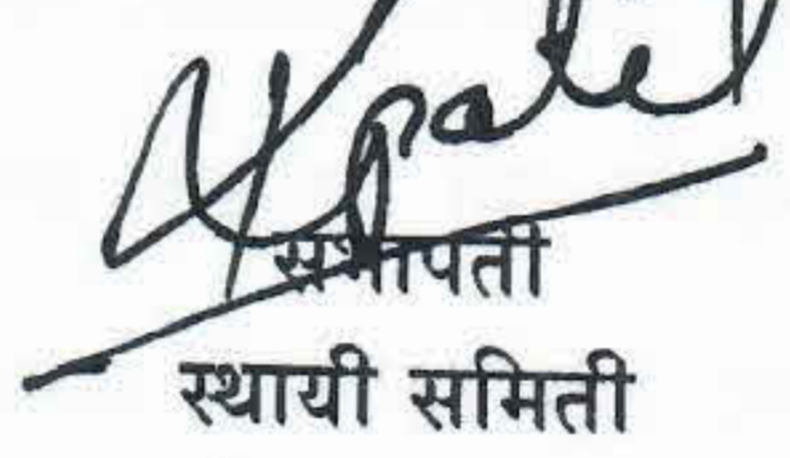 patel
सभापती
स्थायी समिती